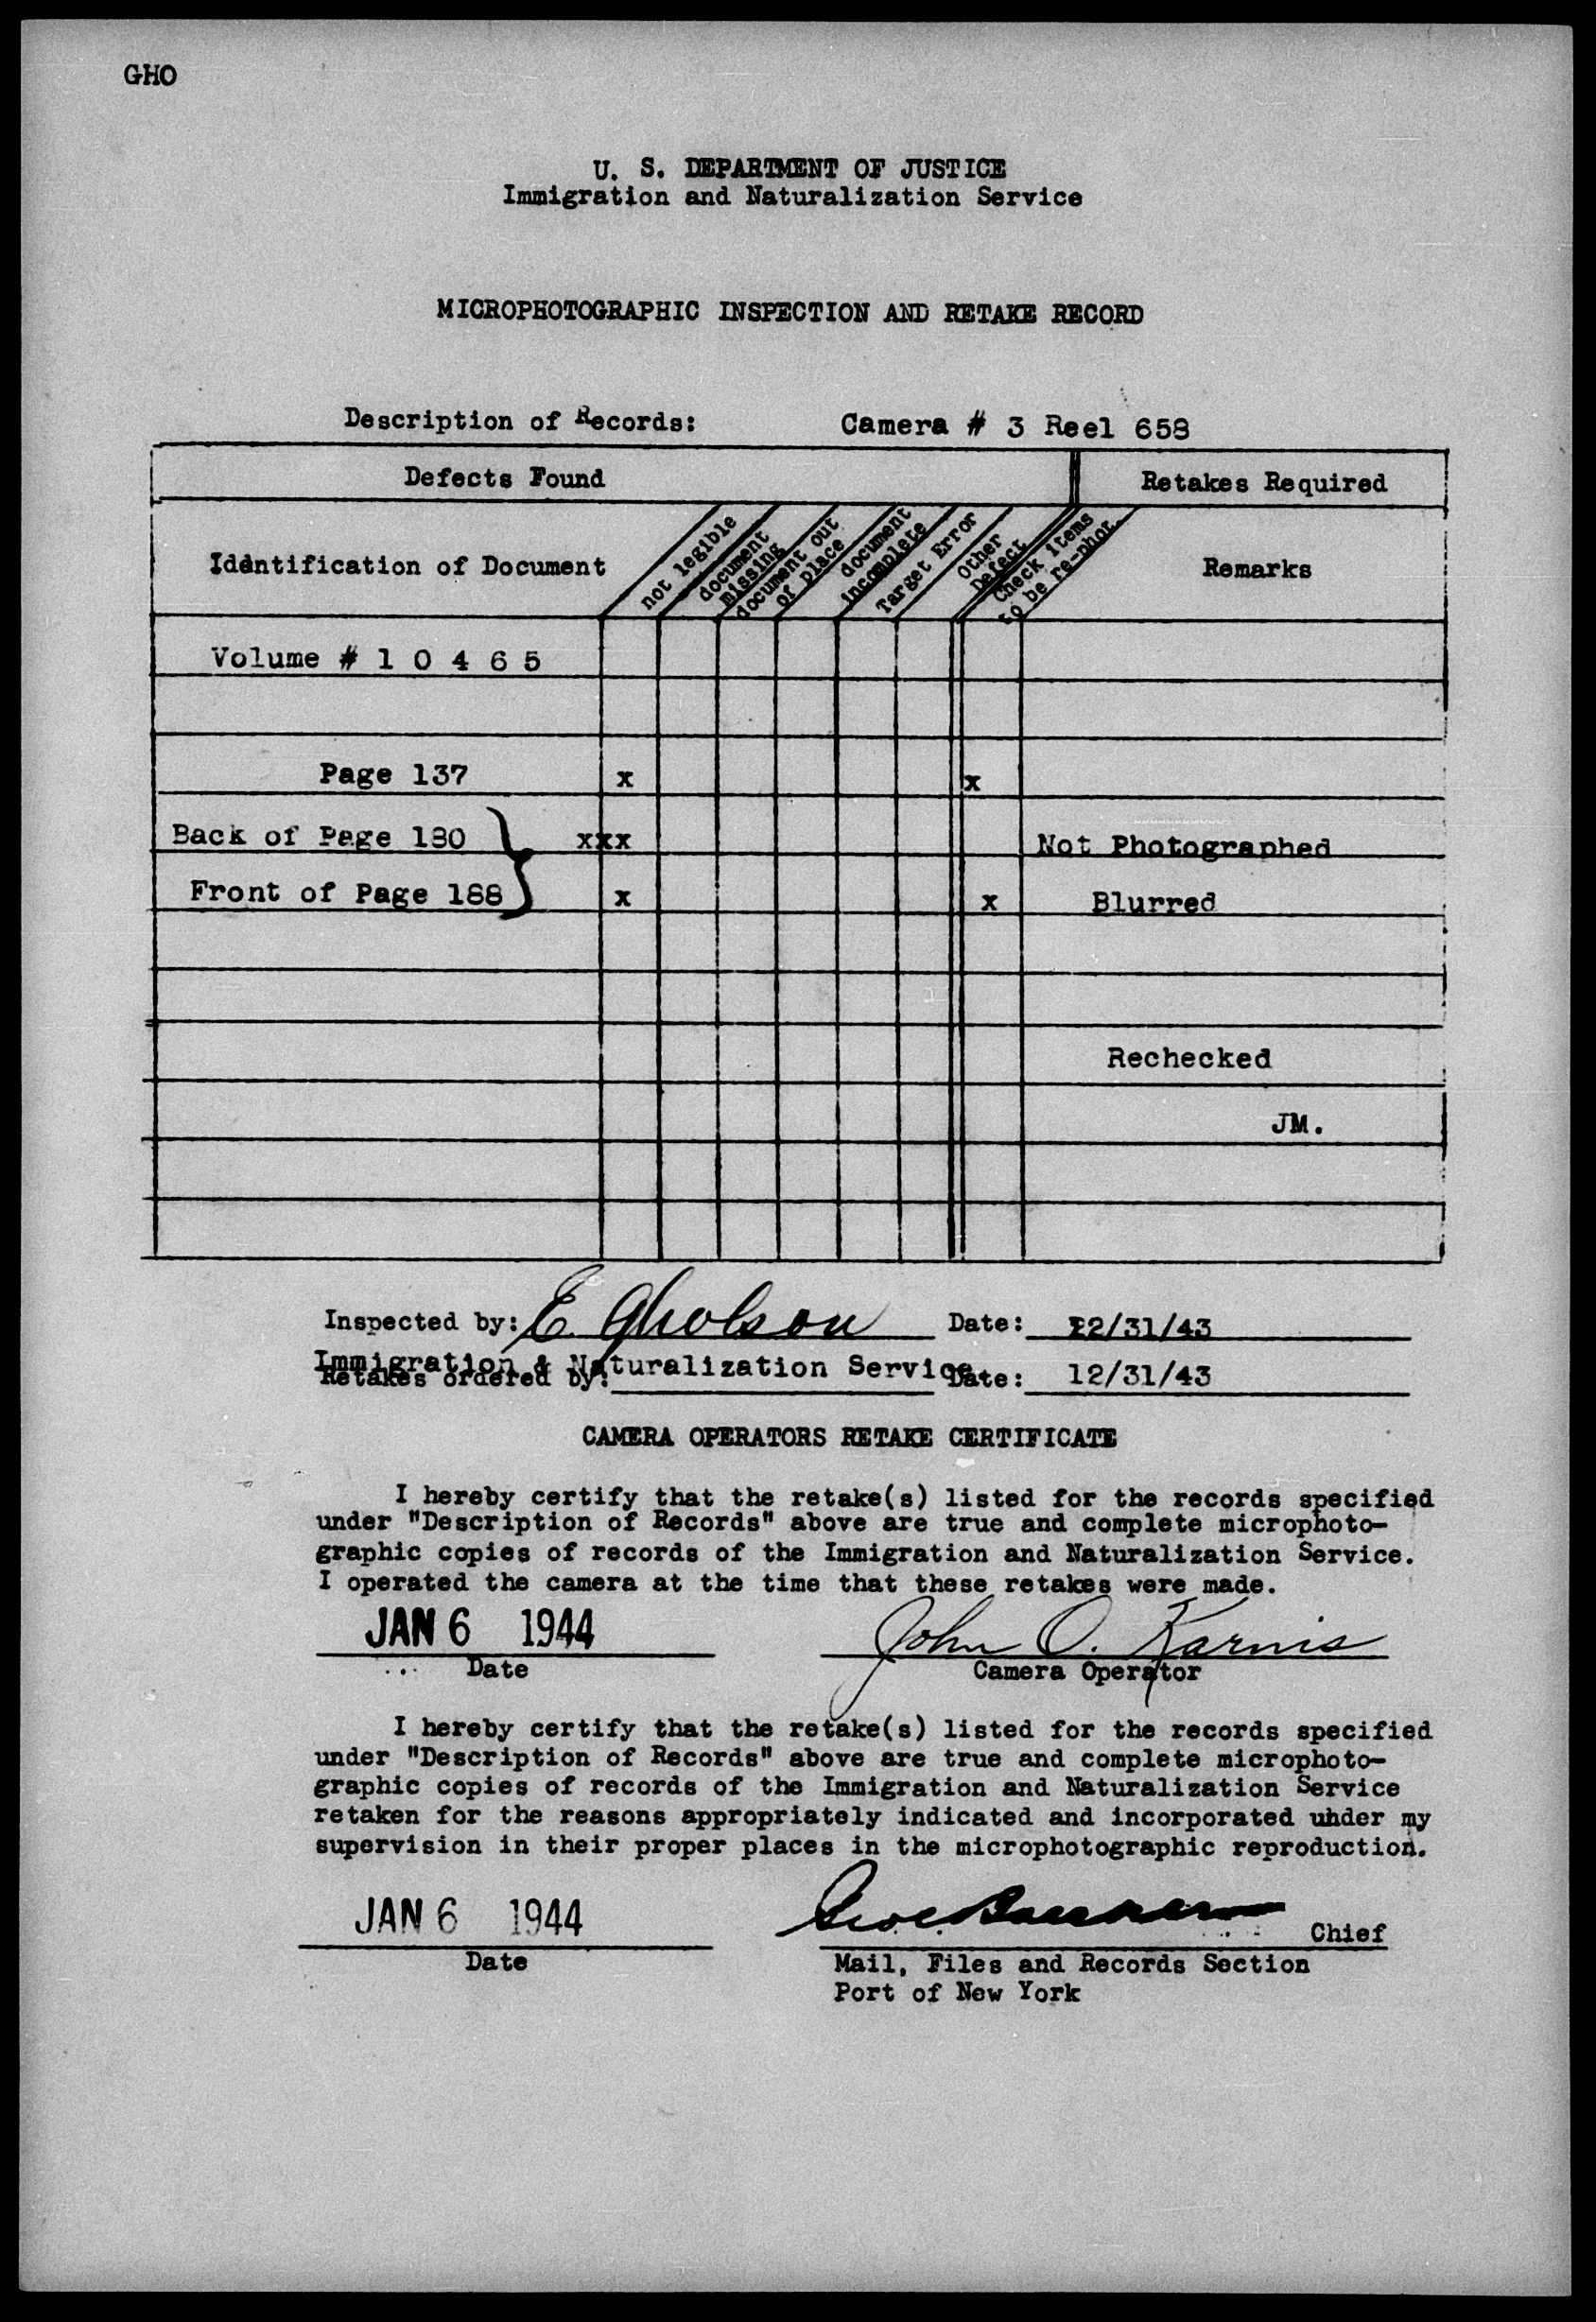 GHO
U. S. DEPARTMENT OF JUSTICE
Immigration and Naturalization Service
MICROPHOTOGRAPHIC INSPECTION AND RETAKE RECORD
Description of Records: Camera # 3 Reel 658
Defects Found Retakes Required
Identification of Document
not legible
document missing
document out of place
document incomplete
Target Error
Other Defect
Check items to be re-phot.
Remarks
Volume # 1 0 4 6 5
Page 137 x x
Back of Page 180 xxx Not Photographed
Front of Page 188 x x Blurred
Rechecked
JM.
Inspected by: E. Gholson Date: 12/31/43
Immigration & Naturalization Service
Retakes ordered by: Date: 12/31/43
CAMERA OPERATORS RETAKE CERTIFICATE
I hereby certify that the retake(s) listed for the records specified
under "Description of Records" above are true and complete microphoto-
graphic copies of records of the Immigration and Naturalization Service.
I operated the camera at the time that these retakes were made.
JAN 6 1944 John O. Karnis
Date Camera Operator
I hereby certify that the retake(s) listed for the records specified
under "Description of Records" above are true and complete microphoto-
graphic copies of records of the Immigration and Naturalization Service
retaken for the reasons appropriately indicated and incorporated uhder my
supervision in their proper places in the microphotographic reproduction.
JAN 6 1944 Chief
Date Mail, Files and Records Section
Port of New York